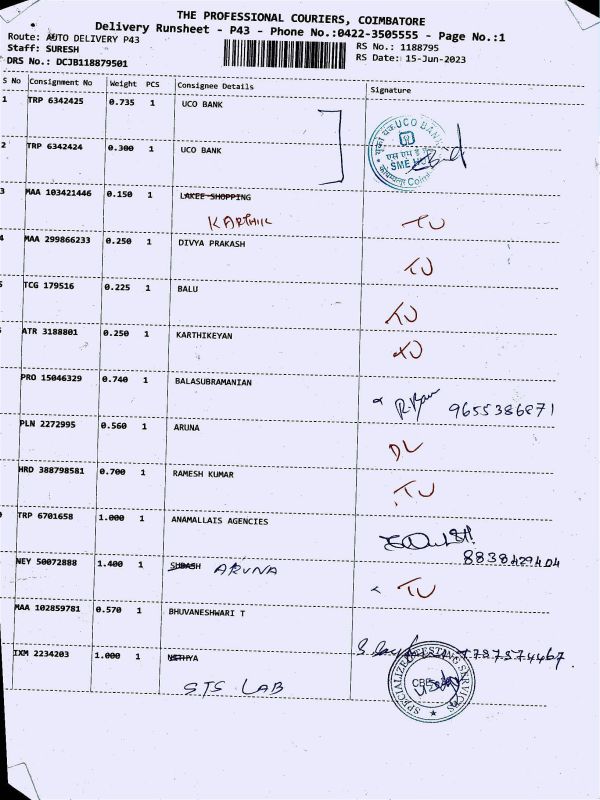 THE PROFESSIONAL COURIERS, COIMBATORE
Delivery Runsheet - P43 - Phone No.:0422-3505555 - Page No.:1
Route: AUTO DELIVERY P43
RS No.: 1188795
Staff: SURESH
RS Date: 15-Jun-2023
DRS No.: DCJB118879501
S No Consignment No Weight PCS Consignee Details Signature
1 TRP 6342425 0.735 1 UCO BANK
UCO BANK
SME
2 TRP 6342424 0.300 1 UCO BANK
3 MAA 103421446 0.150 1 LAKEE SHOPPING
KARTHIK TU
4 MAA 299866233 0.250 1 DIVYA PRAKASH
TU
TCG 179516 0.225 1 BALU
TU
ATR 3188801 0.250 1 KARTHIKEYAN
TU
PRO 15046329 0.740 1 BALASUBRAMANIAN
9655386871
PLN 2272995 0.560 1 ARUNA
DL
HRD 388798581 0.700 1 RAMESH KUMAR
TU
TRP 6701658 1.000 1 ANAMALLAIS AGENCIES
8838429404
NEY 50072888 1.400 1 SUBASH ARUNA
TU
MAA 102859781 0.570 1 BHUVANESHWARI T
7787574467
IXM 2234203 1.000 1 NETHYA
STS LAB
SPECIALIZED TESTING SERVICES
CBE